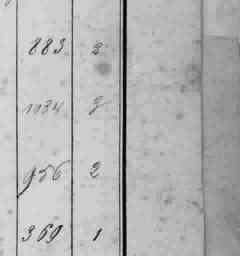 883 2
1134 2
956 2
369 1